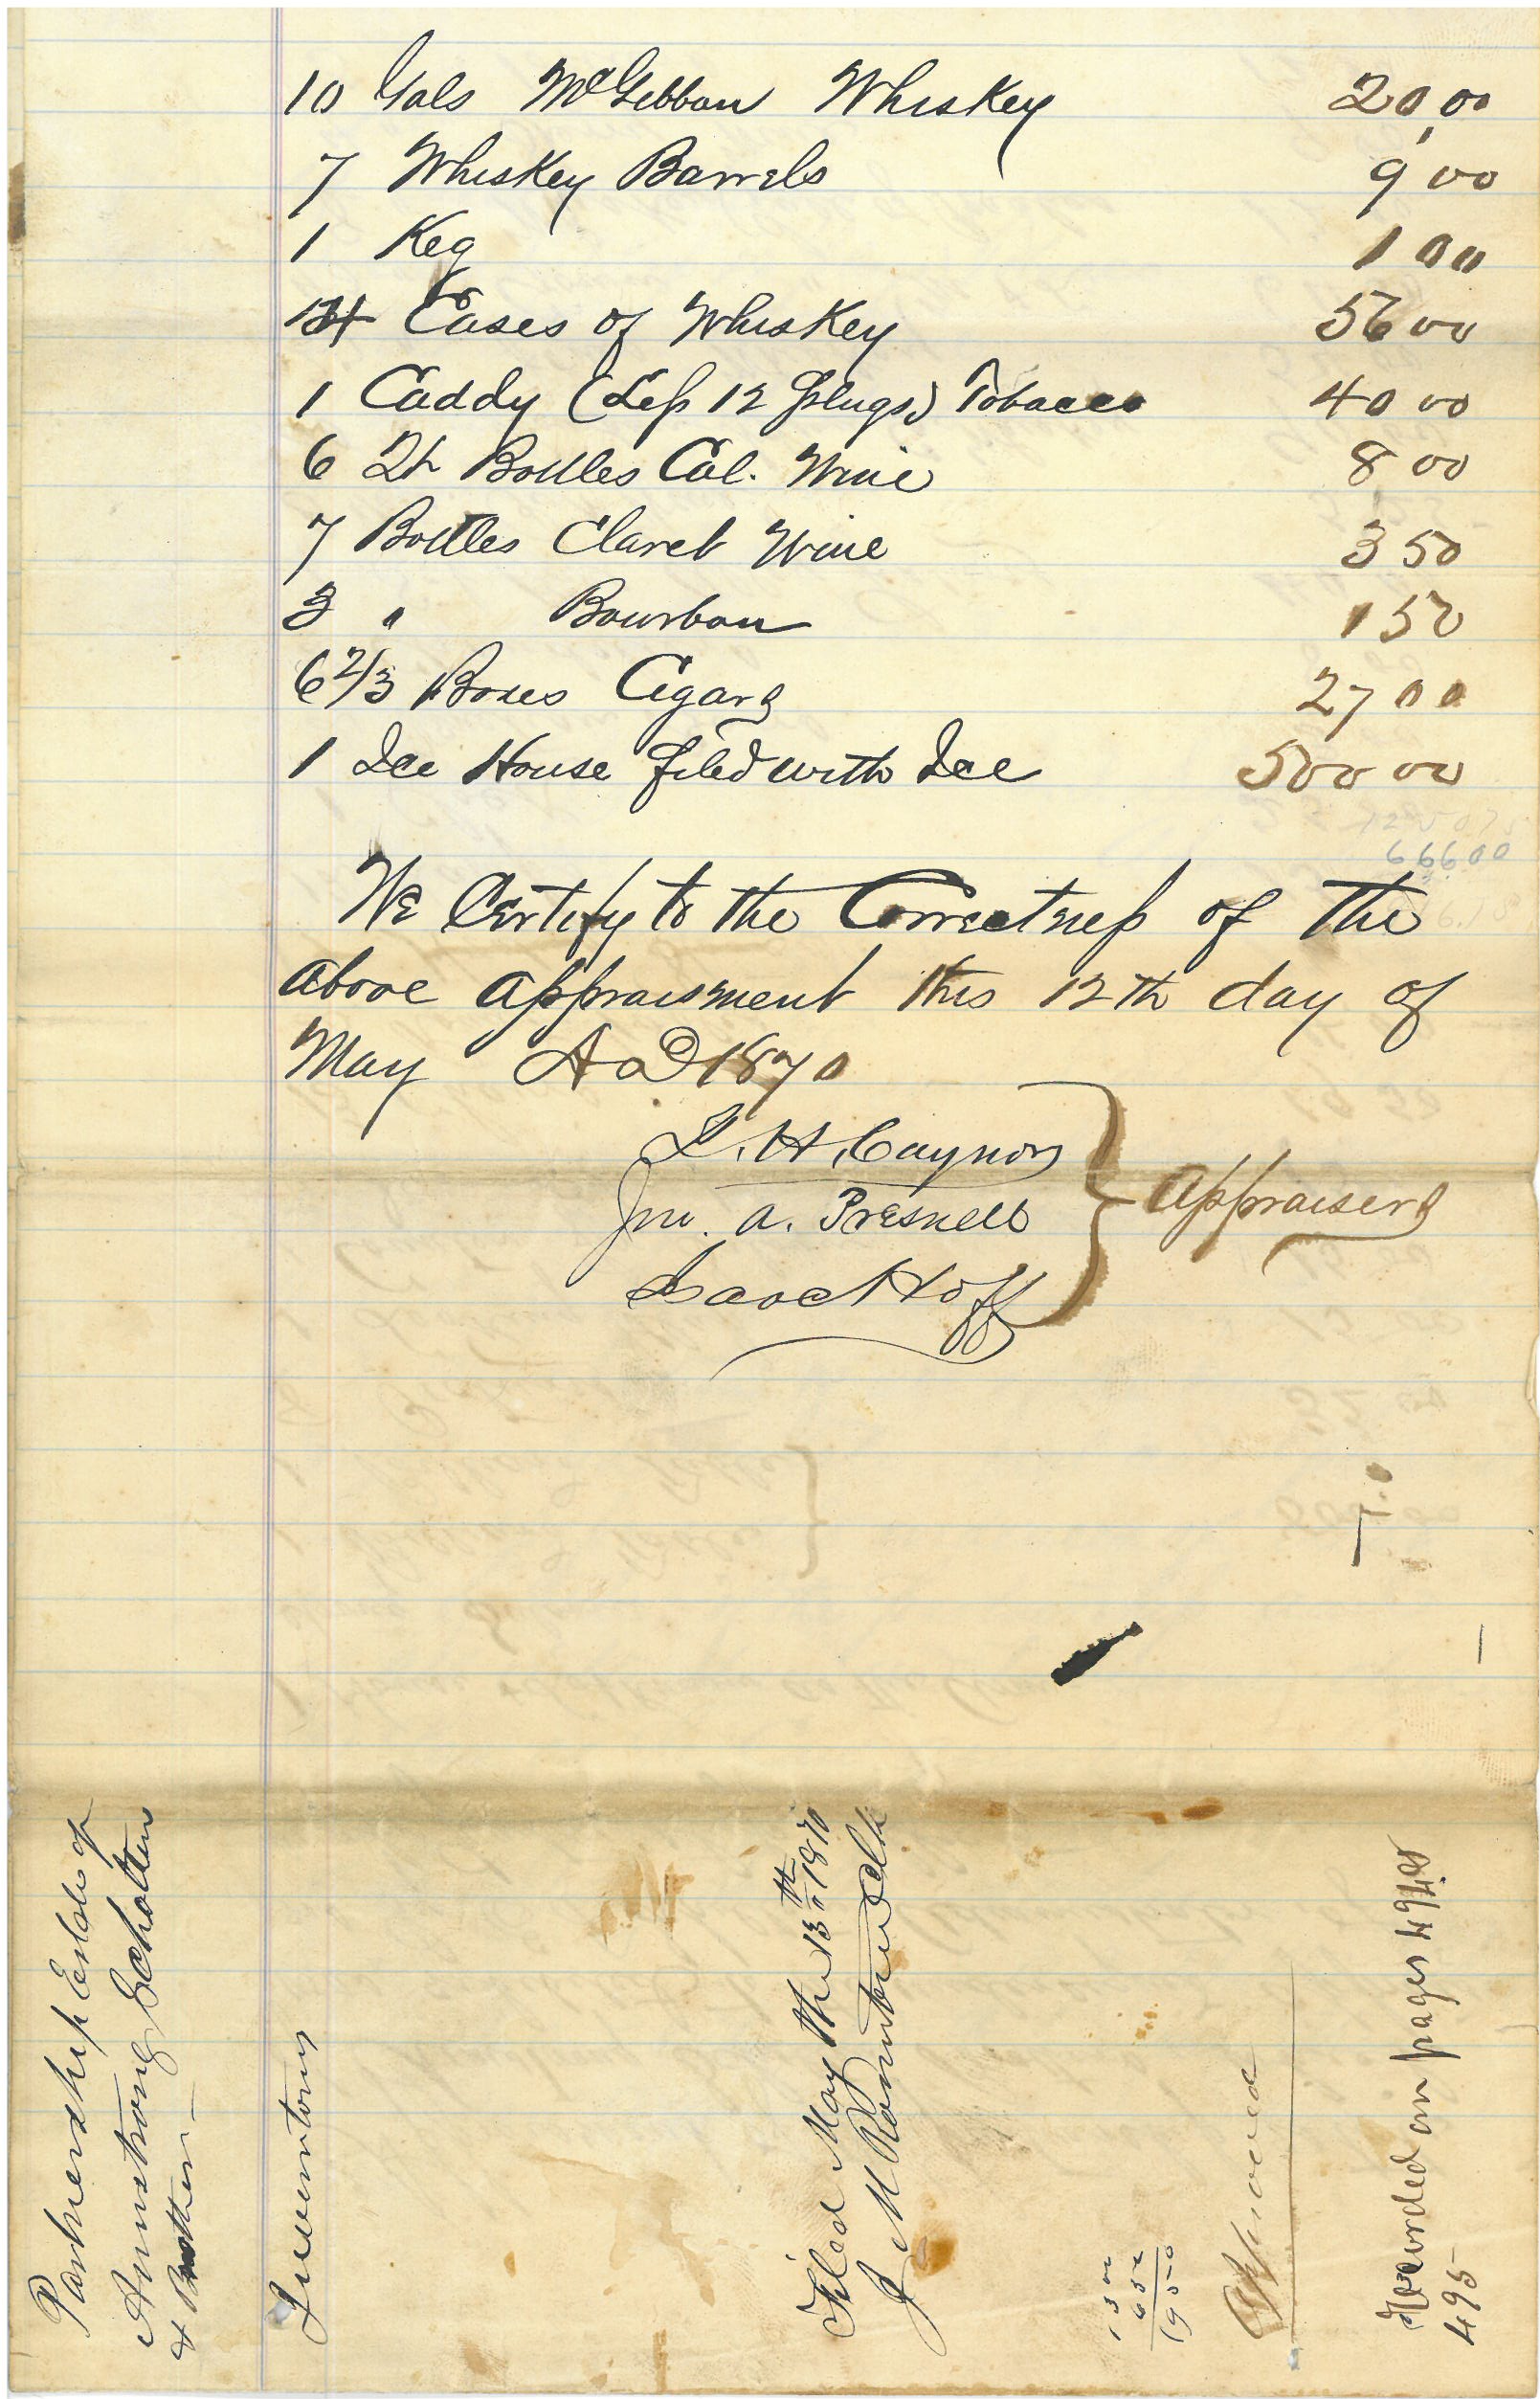 10 Gals McGibbon Whiskey 20,00
7 Whiskey Barrels 9 00
1 Keg 1 00
14 Cases of Whiskey 56 00
1 Caddy (Less 12 plugs) Tobacco 40 00
6 Qt Bottles Cal. Wine 8 00
7 Bottles Claret Wine 3 50
3 " Bourbon 1 50
6 2/3 Boxes Cigars 27 00
1 Ice House filed with Ice 500 00
666.00
We Certify to the Correctness of the
above appraisment this 12th day of
May AD 1870
H. Gaynor
Jno. A. Presnell
Isaac Hoff
Appraisers
Partnership Estate of
Armstrong Scholten
& Brother
Inventory
Filed May the 13th 1870
J M Clk
13 00
6 50
19 50
Approved
Recorded on pages 494 &
495